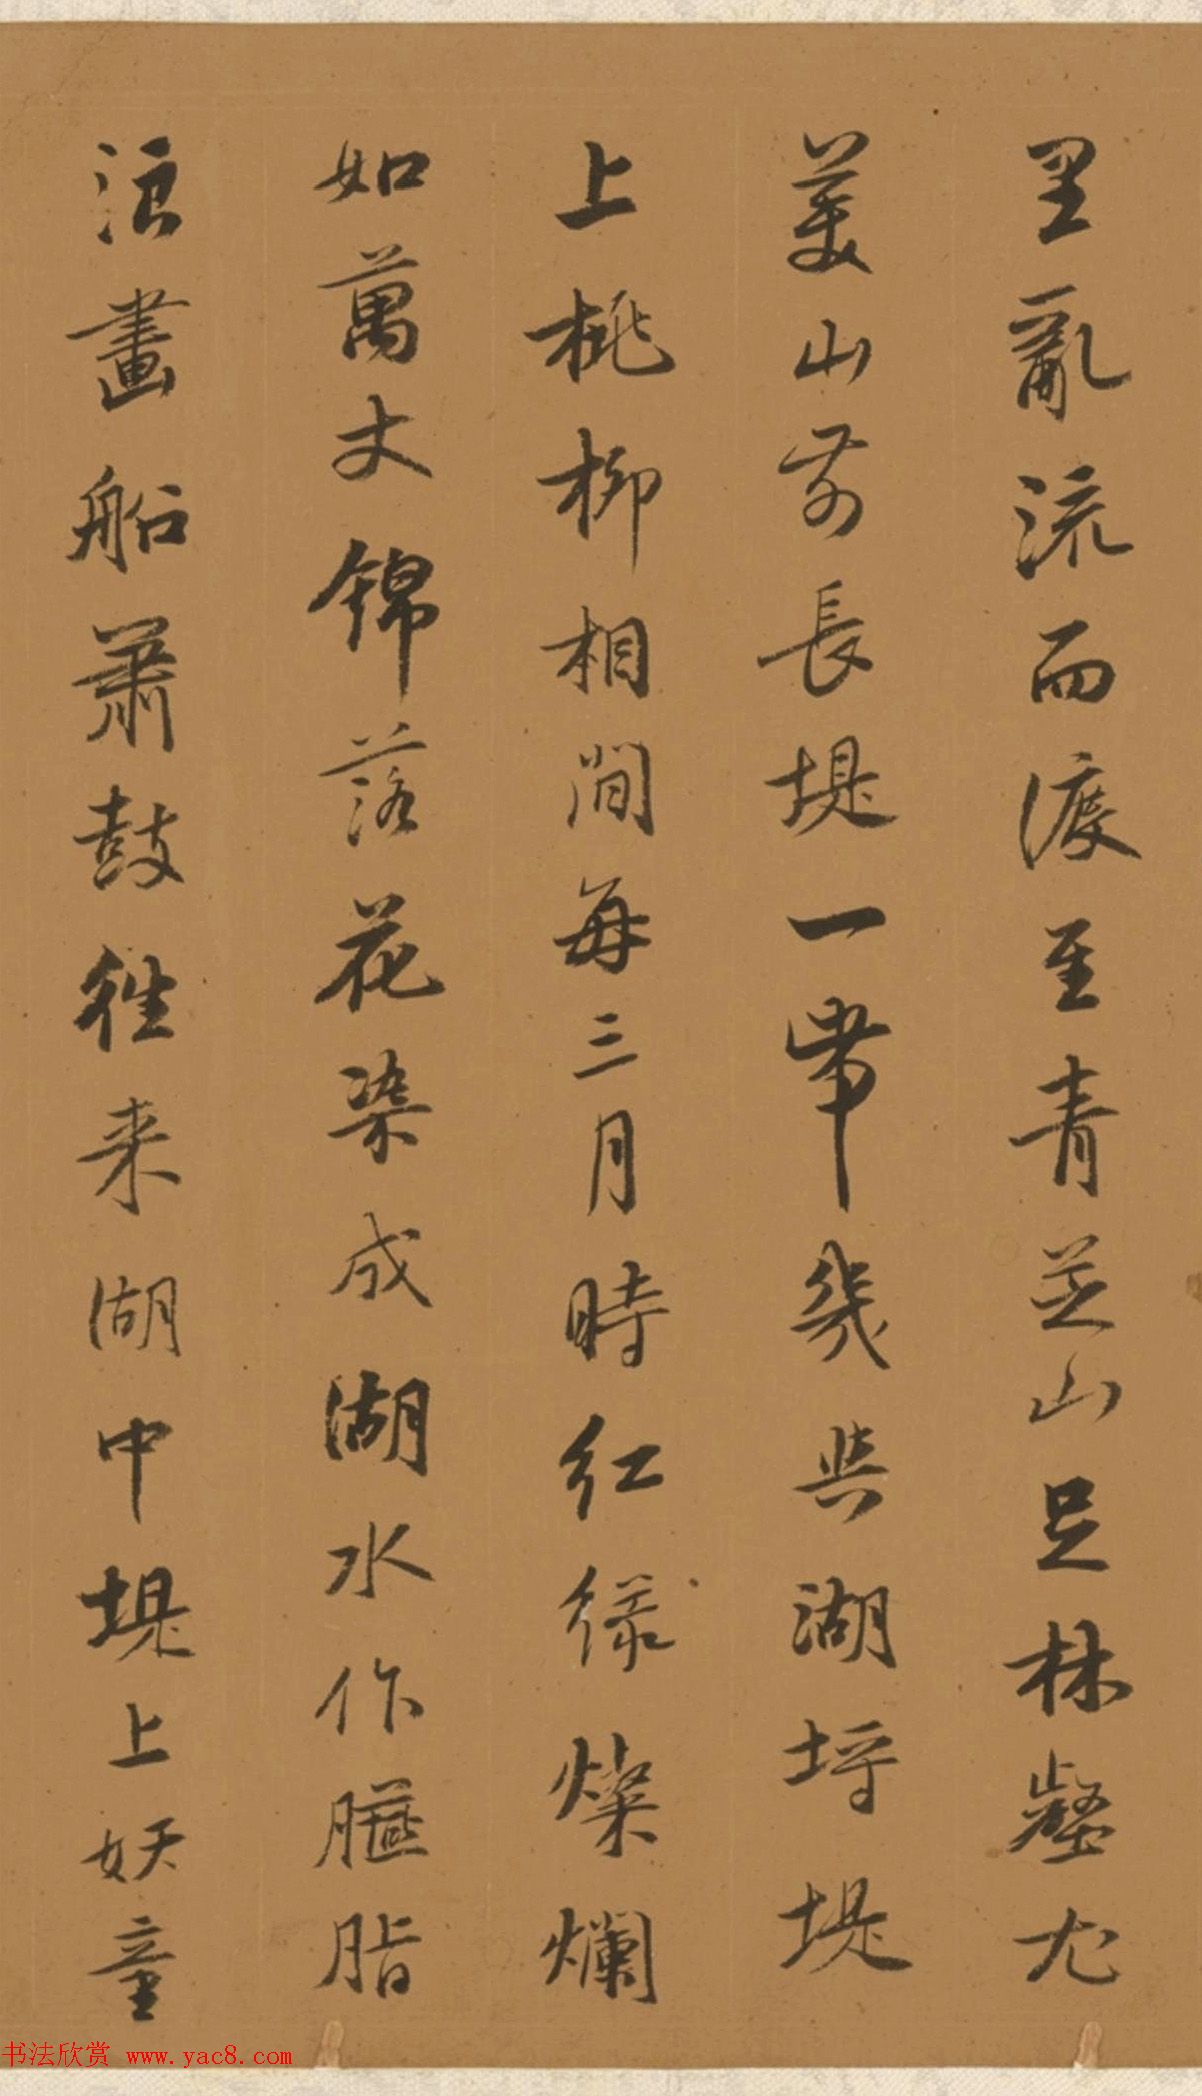 里亂流而渡至青芝山足林壑尤
美山前長堤一帶幾與湖埒堤
上桃柳相間每三月時紅緑燦爛
如萬丈錦落花染成湖水作臙脂
浪畫船蕭鼓往来湖中堤上妖童
书法欣赏 www.yac8.com